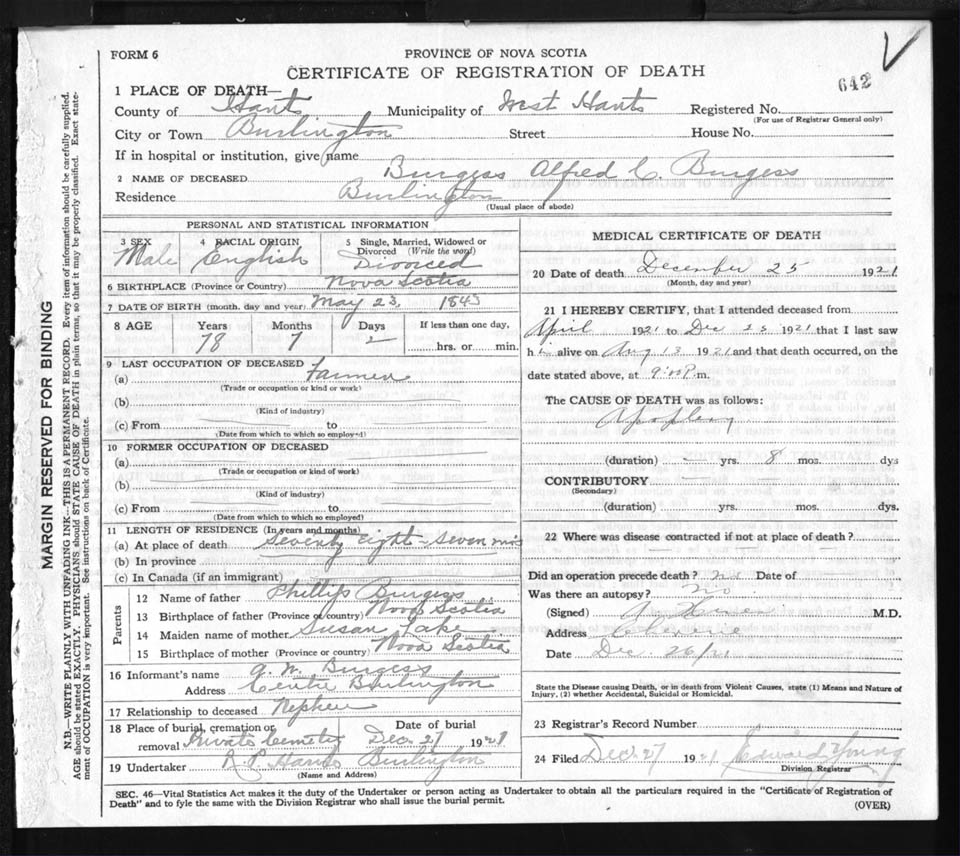 FORM 6
PROVINCE OF NOVA SCOTIA
CERTIFICATE OF REGISTRATION OF DEATH
642
1 PLACE OF DEATH—
County of Hants Municipality of West Hants Registered No.
(For use of Registrar General only)
City or Town Burlington Street House No.
If in hospital or institution, give name
2 NAME OF DECEASED Burgess Alfred C. Burgess
Residence Burlington
(Usual place of abode)
PERSONAL AND STATISTICAL INFORMATION
3 SEX 4 RACIAL ORIGIN 5 Single, Married, Widowed or Divorced (Write the word)
Male English Divorced
6 BIRTHPLACE (Province or Country) Nova Scotia
7 DATE OF BIRTH (month, day and year) May 23, 1843
8 AGE Years Months Days If less than one day,
78 7 2 hrs. or min.
9 LAST OCCUPATION OF DECEASED
(a) Farmer
(Trade or occupation or kind or work)
(b)
(Kind of industry)
(c) From to
(Date from which to which so employed)
10 FORMER OCCUPATION OF DECEASED
(a)
(Trade or occupation or kind of work)
(b)
(Kind of industry)
(c) From to
(Date from which to which so employed)
11 LENGTH OF RESIDENCE (In years and months)
(a) At place of death Seventy Eight - Seven mos
(b) In province
(c) In Canada (if an immigrant)
Parents
12 Name of father Phillip Burgess
13 Birthplace of father (Province or country) Nova Scotia
14 Maiden name of mother Susan Lake
15 Birthplace of mother (Province or country) Nova Scotia
16 Informant's name A. W. Burgess
Address Centre Burlington
17 Relationship to deceased Nephew
18 Place of burial, cremation or Date of burial
removal Private Cemetry Dec. 27 1921
19 Undertaker R. P. Hants Burlington
(Name and Address)
MEDICAL CERTIFICATE OF DEATH
20 Date of death December 25 1921
(Month, day and year)
21 I HEREBY CERTIFY, that I attended deceased from
April 1921 to Dec 25 1921 that I last saw
h i alive on Aug 13 1921 and that death occurred, on the
date stated above, at 9:00 P.m.
The CAUSE OF DEATH was as follows:
Apoplexy
(duration) - yrs. 8 mos. dys
CONTRIBUTORY
(Secondary)
(duration) yrs. mos. dys.
22 Where was disease contracted if not at place of death?
Did an operation precede death? no Date of
Was there an autopsy? No
(Signed) M.D.
Address Cheverie
Date Dec. 26/21
State the Disease causing Death, or in death from Violent Causes, state (1) Means and Nature of
Injury, (2) whether Accidental, Suicidal or Homicidal.
23 Registrar's Record Number
24 Filed Dec. 27 1921 Edward Young
Division Registrar
SEC. 46—Vital Statistics Act makes it the duty of the Undertaker or person acting as Undertaker to obtain all the particulars required in the "Certificate of Registration of
Death" and to fyle the same with the Division Registrar who shall issue the burial permit.
(OVER)
MARGIN RESERVED FOR BINDING
N.B.—WRITE PLAINLY WITH UNFADING INK—THIS IS A PERMANENT RECORD. Every item of information should be carefully supplied.
AGE should be stated EXACTLY. PHYSICIANS should STATE CAUSE OF DEATH in plain terms, so that it may be properly classified. Exact state-
ment of OCCUPATION is very important. See instructions on back of Certificate.